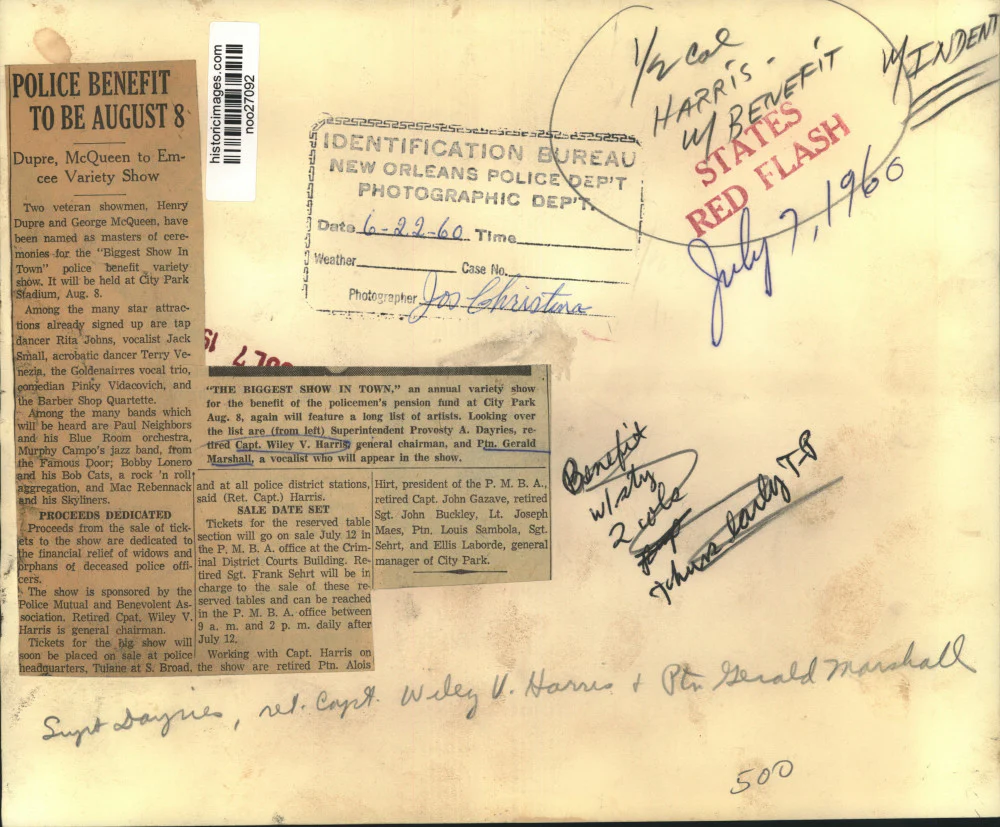 POLICE BENEFIT
TO BE AUGUST 8
Dupre, McQueen to Em-
cee Variety Show
Two veteran showmen, Henry
Dupre and George McQueen, have
been named as masters of cere-
monies for the "Biggest Show In
Town" police benefit variety
show. It will be held at City Park
Stadium, Aug. 8.
Among the many star attrac-
tions already signed up are tap
dancer Rita Johns, vocalist Jack
Small, acrobatic dancer Terry Ve-
nezia, the Goldenairres vocal trio,
comedian Pinky Vidacovich, and
the Barber Shop Quartette.
Among the many bands which
will be heard are Paul Neighbors
and his Blue Room orchestra,
Murphy Campo's jazz band, from
the Famous Door; Bobby Lonero
and his Bob Cats, a rock 'n roll
aggregation, and Mac Rebennack
and his Skyliners.
PROCEEDS DEDICATED
Proceeds from the sale of tick-
ets to the show are dedicated to
the financial relief of widows and
orphans of deceased police offi-
cers.
The show is sponsored by the
Police Mutual and Benevolent As-
sociation. Retired Cpat. Wiley V.
Harris is general chairman.
Tickets for the big show will
soon be placed on sale at police
headquarters, Tulane at S. Broad,
and at all police district stations,
said (Ret. Capt.) Harris.
SALE DATE SET
Tickets for the reserved table
section will go on sale July 12 in
the P. M. B. A. office at the Crim-
inal District Courts Building. Re-
tired Sgt. Frank Sehrt will be in
charge to the sale of these re-
served tables and can be reached
in the P. M. B. A. office between
9 a. m. and 2 p. m. daily after
July 12.
Working with Capt. Harris on
the show are retired Ptn. Alois
Hirt, president of the P. M. B. A.,
retired Capt. John Gazave, retired
Sgt. John Buckley, Lt. Joseph
Maes, Ptn. Louis Sambola, Sgt.
Sehrt, and Ellis Laborde, general
manager of City Park.
"THE BIGGEST SHOW IN TOWN," an annual variety show
for the benefit of the policemen's pension fund at City Park
Aug. 8, again will feature a long list of artists. Looking over
the list are (from left) Superintendent Provosty A. Dayries, re-
tired Capt. Wiley V. Harris, general chairman, and Ptn. Gerald
Marshall, a vocalist who will appear in the show.
historicimages.com
noo27092
IDENTIFICATION BUREAU
NEW ORLEANS POLICE DEP'T
PHOTOGRAPHIC DEP'T.
Date 6-22-60 Time
Weather Case No.
Photographer Jos Christina
1/2 Col
HARRIS -
W/ BENEFIT
W/INDENT
STATES
RED FLASH
July 7, 1960
JUL 7 19
Benefit
w/sty
2 cols
T-P
Supt Dayries, ret. Capt. Wiley V. Harris + Ptn Gerald Marshall
500